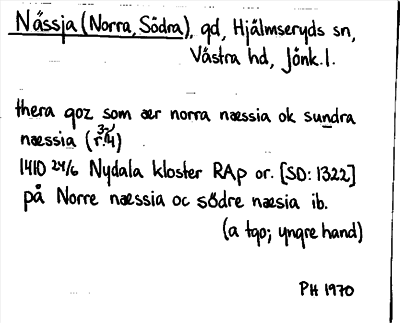 Nässja (Norra, Södra), gd, Hjälmseryds sn,
Västra hd, Jönk. l.
thera goz som ær norra næssia ok sundra
næssia (r. 3-4)
1410 24/6 Nydala kloster RAp or. [SD: 1322]
på Norre næssia oc södre næsia ib.
(a tgo; yngre hand)
PH 1970